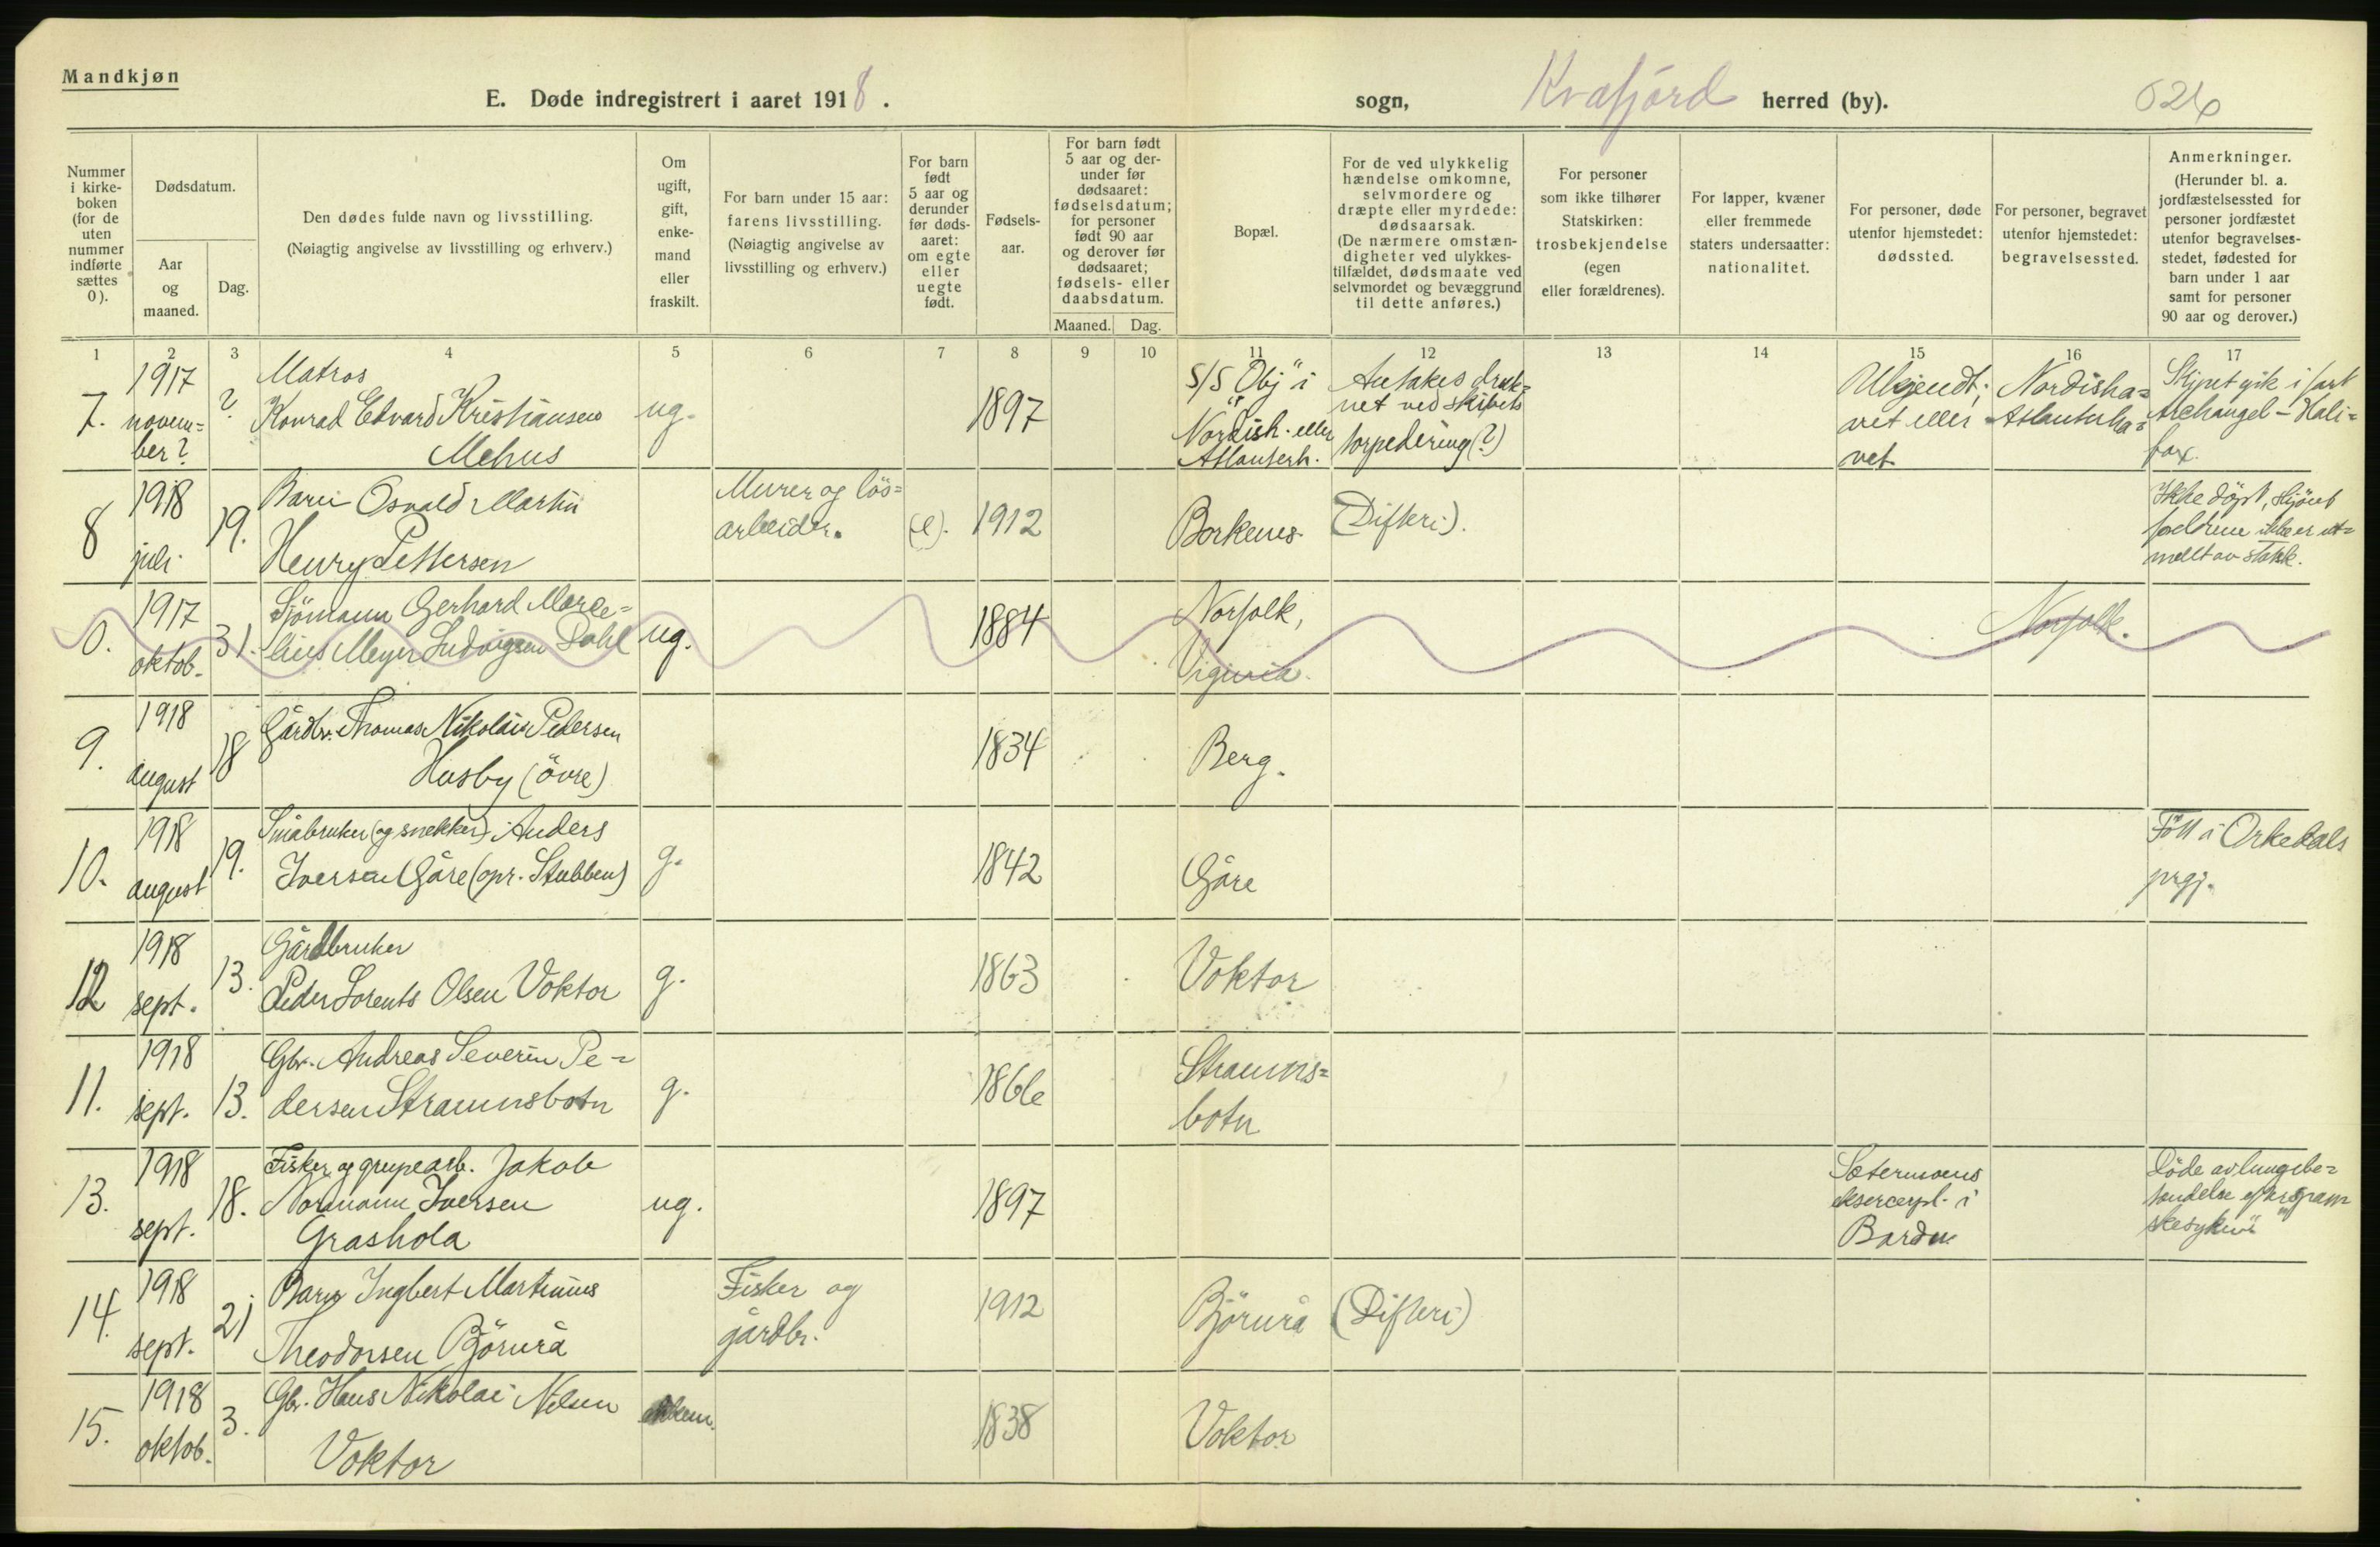 Mandkjøn
E. Døde indregistrert i aaret 1918.
sogn, Kvæfjord herred (by).
Nummer i kirkeboken (for de uten nummer indførte sættes 0).
Dødsdatum.
Aar og maaned.
Dag.
Den dødes fulde navn og livsstilling.
(Nøiagtig angivelse av livsstilling og erhverv.)
Om ugift, gift, enkemand eller fraskilt.
For barn under 15 aar: farens livsstilling.
(Nøiagtig angivelse av livsstilling og erhverv.)
For barn født 5 aar og derunder før dødsaaret: om egte eller uegte født.
Fødselsaar.
For barn født 5 aar og derunder før dødsaaret: fødselsdatum; for personer født 90 aar og derover før dødsaaret; fødsels- eller daabsdatum.
Maaned.
Dag.
Bopæl.
For de ved ulykkelig hændelse omkomne, selvmordere og dræpte eller myrdede: dødsaarsak.
(De nærmere omstændigheter ved ulykkestilfældet, dødsmaate ved selvmordet og bevæggrund til dette anføres.)
For personer som ikke tilhører Statskirken: trosbekjendelse (egen eller forældrenes).
For lapper, kvæner eller fremmede staters undersaatter: nationalitet.
For personer, døde utenfor hjemstedet: dødssted.
For personer, begravet utenfor hjemstedet: begravelsessted.
Anmerkninger.
(Herunder bl. a. jordfæstelsessted for personer jordfæstet utenfor begravelsesstedet, fødested for barn under 1 aar samt for personer 90 aar og derover.)
1 2 3 4 5 6 7 8 9 10 11 12 13 14 15 16 17
7. 1917 november? ?
Matros
Konrad Edvard Kristiansen
Mehus
ug.
1897
S/S "Obj" i
Nordish. eller
Atlanterh.
Antakes druk=
net ved skibets
torpedering(?)
Ukjendt; Nordisha=
vet eller Atlanterha=
vet
Skipet gik i fart
Archangel - Hali=
fax.
8 1918 juli 19.
Barn Osvald Martin
Henry Pettersen
Murer og løs=
arbeider.
(e).
1912
Borkenes.
(Difteri).
Ikke döpt, skjönt
foreldrene ikke er ut=
meldt av statsk.
0. 1917 oktob. 31.
Sjömann Gerhard Marce=
lius Meyer Ludvigsen Dahl
ug.
1884
Norfolk,
Viginia.
Norfolk.
9. 1918 august 18
Gårdbr. Thomas Nikolai Pedersen
Husby (övre)
1834
Berg.
10. 1918 august 19.
Småbruker (og snekker) Anders
Iversen Gåre (opr. Stubben)
g.
1842
Gåre
Föt i Orkedals
prgj.
12 1918 sept. 13.
Gårdbruker
Peder Lorents Olsen Voktor
g.
1863
Voktor
11. 1918 sept. 13.
Gbr. Andreas Severin Pe=
dersen Straumsbotn
g.
1866
Straums=
botn
13. 1918 sept. 18.
Fisker og grupearb. Jakob
Normann Iversen
Grashola
ug.
1897
Setermoens
eksercerpl. i
Bardu
Döde av lungebe=
tendelse efter "span
skesyken"
14. 1918 sept. 21
Barn Ingbert Martinius
Theodorsen Björnrå
Fisker og
gårdbr.
1912
Björnrå
(Difteri)
15. 1918 oktob. 3.
Gbr. Hans Nikolai Nilsen
Voktor
enkem.
1838
Voktor